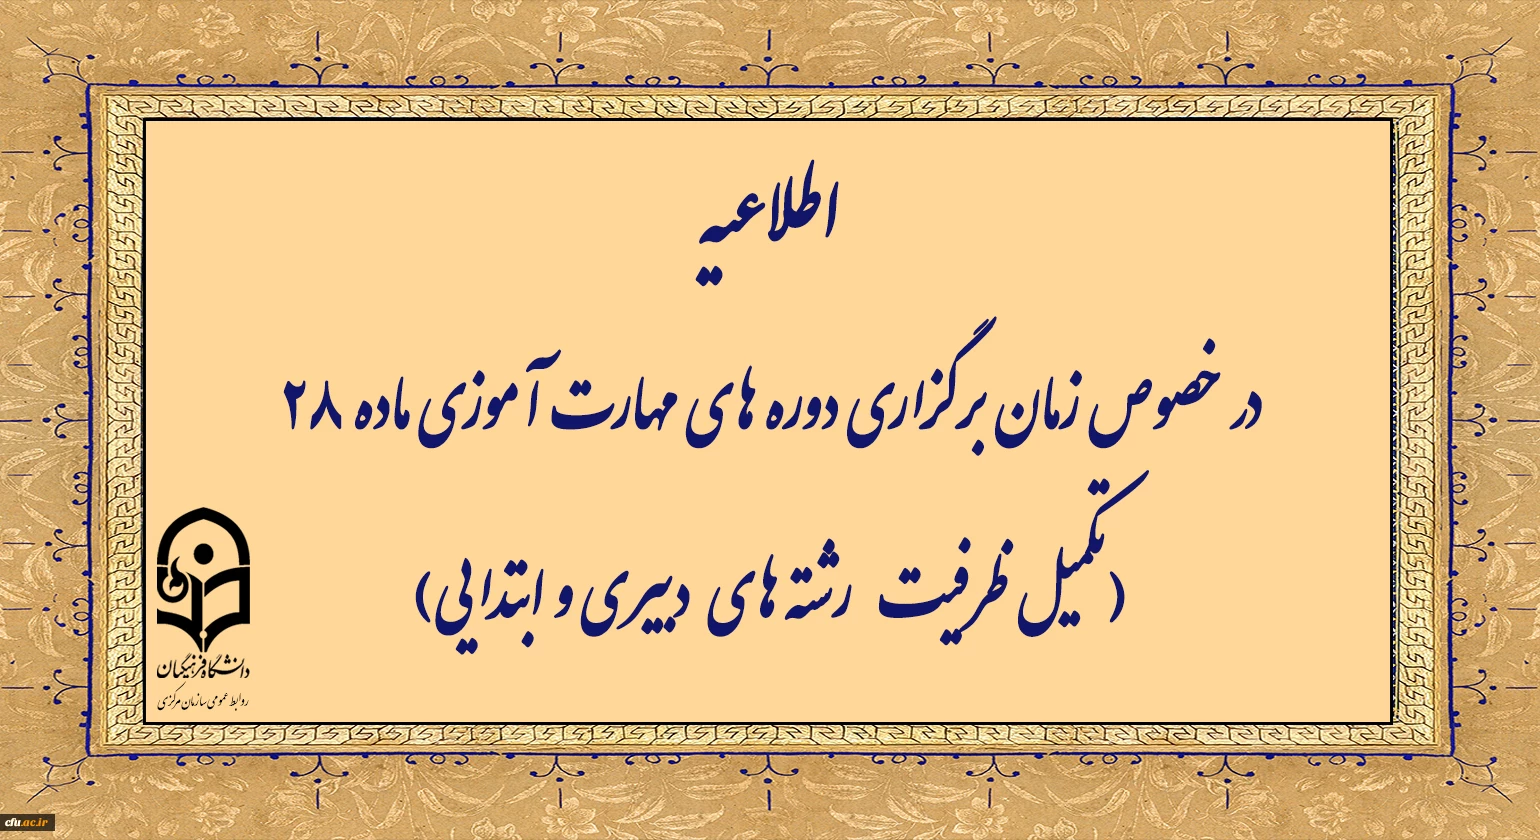 اطلاعیه
در خصوص زمان برگزاری دوره های مهارت آموزی ماده ۲۸
(تکمیل ظرفیت رشته های دبیری و ابتدایی)
دانشگاه فرهنگیان
روابط عمومی سازمان مرکزی
cfu.ac.ir